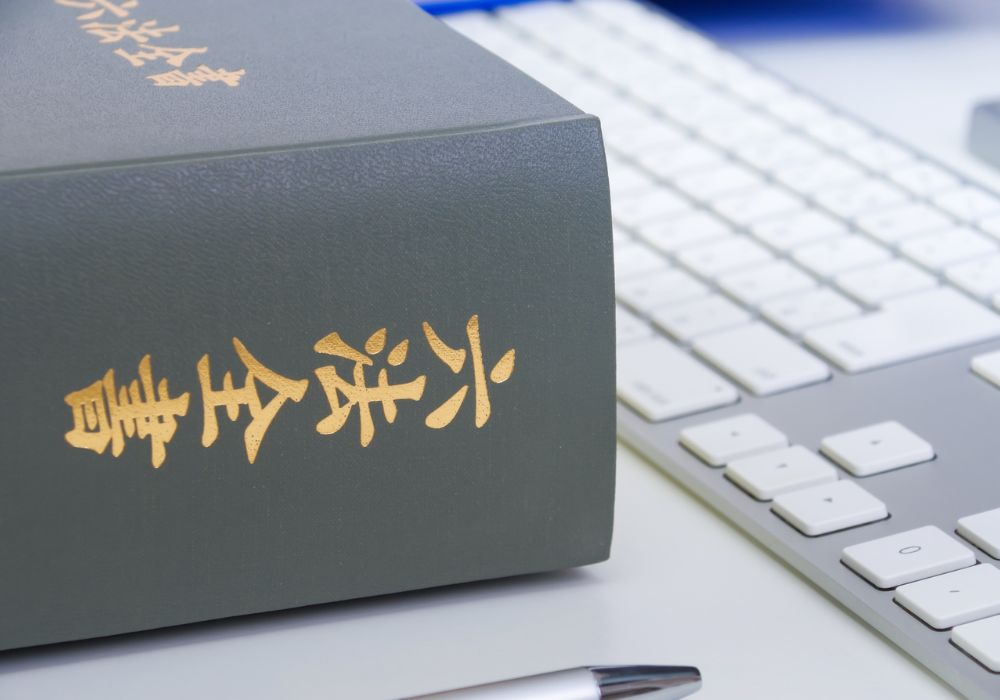 六法全書
六法全書
0